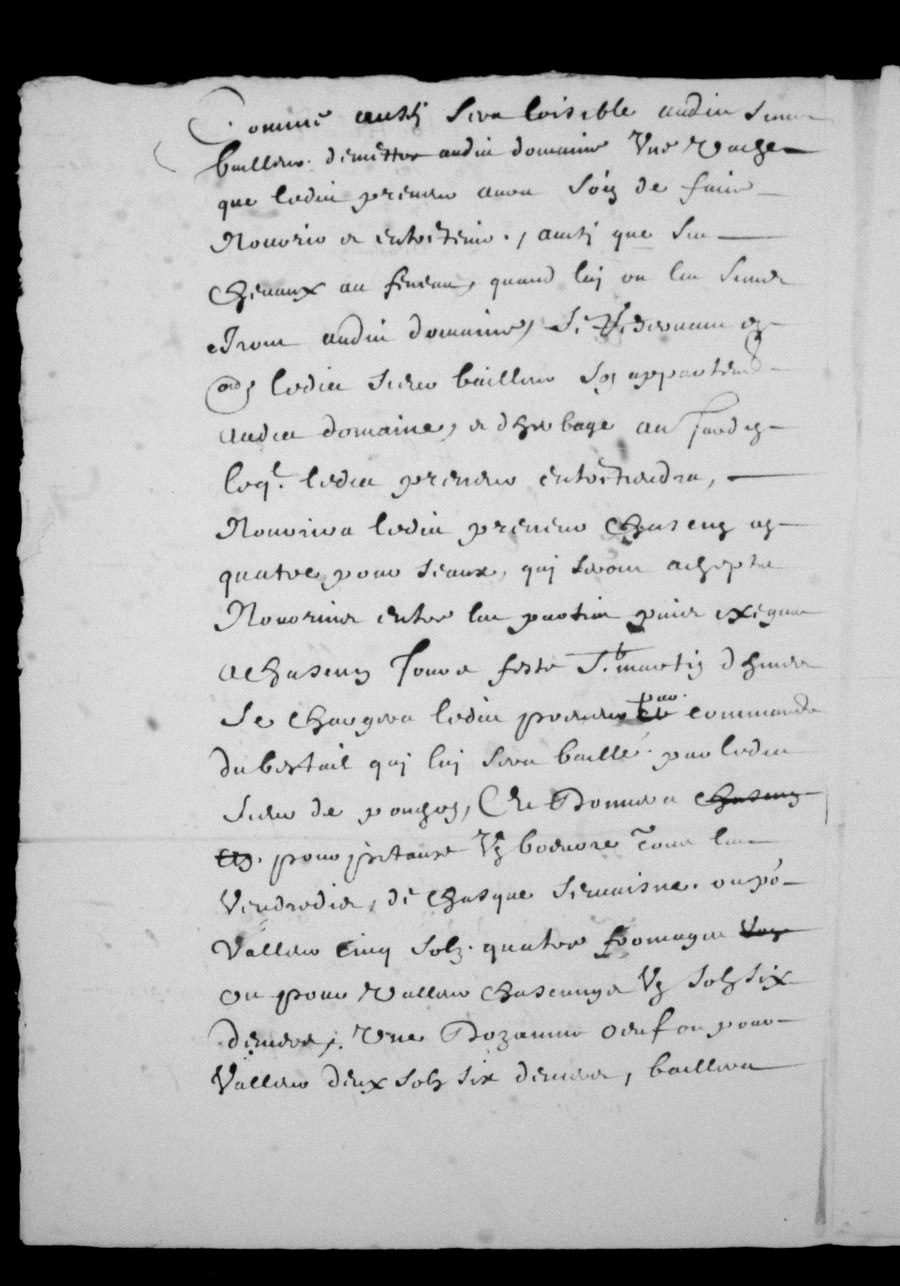 Comme aussi sera loisible audit sieur
bailleur de mettre audit domaine Une Vache
que ledit preneur aura soin de faire
Nourrir et entretenir, aussi que ses
chevaux au feneau, quand luj ou les siens
Iront audit domaine,
ledit sieur bailleur appartend
audit domaine, et dherbage au Jardin
leql. ledit preneur entretiendra,
Nourrira ledit preneur chascung an
quatre pourseaux, quj seront achepte
Nourrine entre les parties pour exegue
a chascung Jour et feste St. martin dhiver
Se chargera ledit preneur par commande
du bestail quj luj sera baillé par ledit
Sieur de, Et Donnera chascung
an. pour pitanse Ung beurre Tous les
Vendredis, de chasque semaisne. ou po.
Valleur Cinq solz. quatre fromages
ou pour Valleur chascunge Ung solz six
deniers, Une Dozanne oeuf ou pour
Valleur deux solz six deniers, baillera